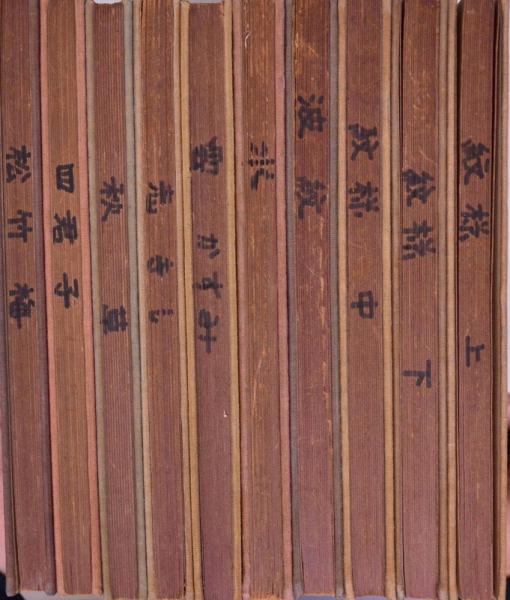 紋様 上
紋様 下
紋様 中
波紋
雲 かすみ
秋草
四君子
松竹梅